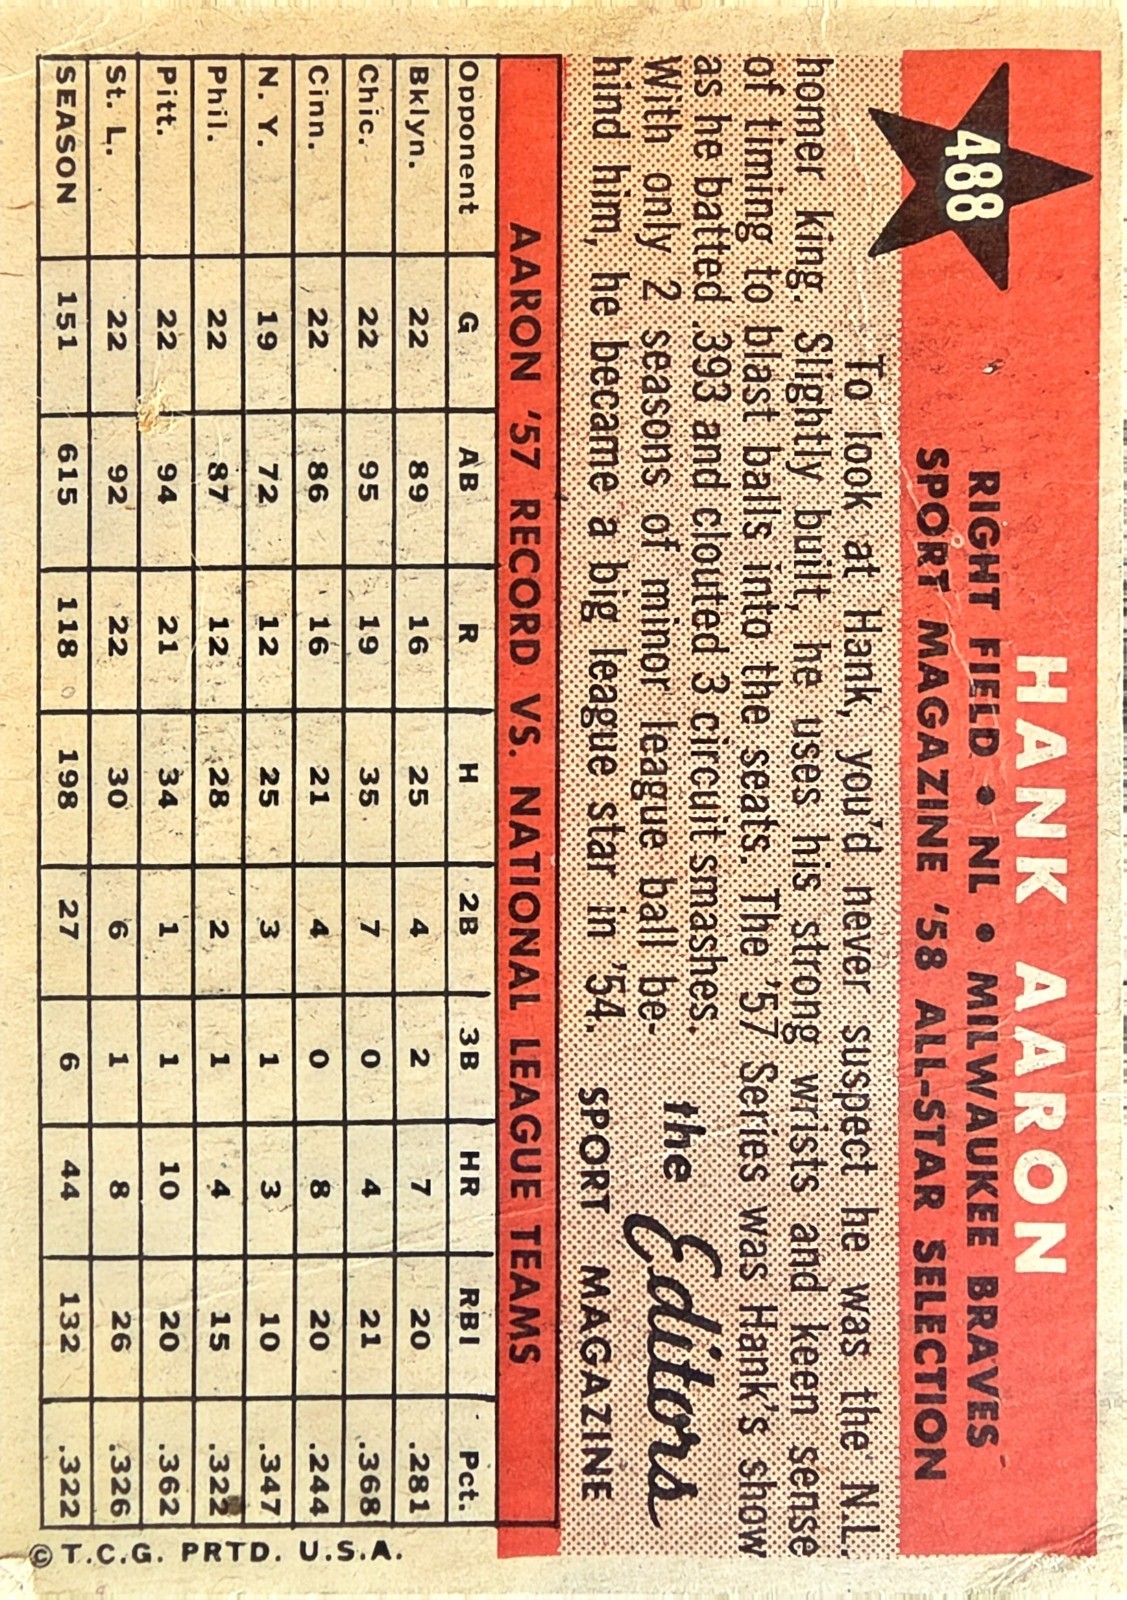 488
HANK AARON
RIGHT FIELD • NL • MILWAUKEE BRAVES
SPORT MAGAZINE '58 ALL-STAR SELECTION
To look at Hank, you'd never suspect he was the N.L.
homer king. Slightly built, he uses his strong wrists and keen sense
of timing to blast balls into the seats. The '57 Series was Hank's show
as he batted .393 and clouted 3 circuit smashes.
With only 2 seasons of minor league ball be-
hind him, he became a big league star in '54.
the Editors
SPORT MAGAZINE
AARON '57 RECORD VS. NATIONAL LEAGUE TEAMS
Opponent G AB R H 2B 3B HR RBI Pct.
Bklyn. 22 89 16 25 4 2 7 20 .281
Chic. 22 95 19 35 7 0 4 21 .368
Cinn. 22 86 16 21 4 0 8 20 .244
N. Y. 19 72 12 25 3 1 3 10 .347
Phil. 22 87 12 28 2 1 4 15 .322
Pitt. 22 94 21 34 1 1 10 20 .362
St. L. 22 92 22 30 6 1 8 26 .326
SEASON 151 615 118 198 27 6 44 132 .322
© T.C.G. PRTD. U.S.A.